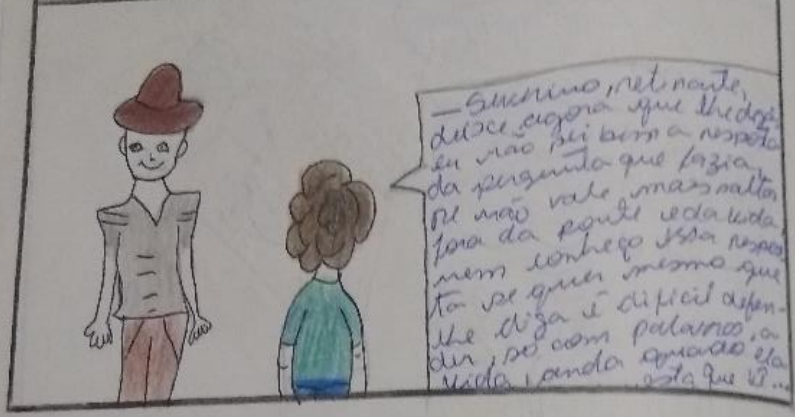 — Severino, retirante,
deixe agora que lhe diga
eu não sei bem a resposta
da pergunta que fazia,
se não vale mais saltar
fora da ponte e da vida
nem conheço essa respos
ta se quer mesmo que
lhe diga é dificil defen-
der, só com palavras, a
vida, ainda quando ela
esta que vê...